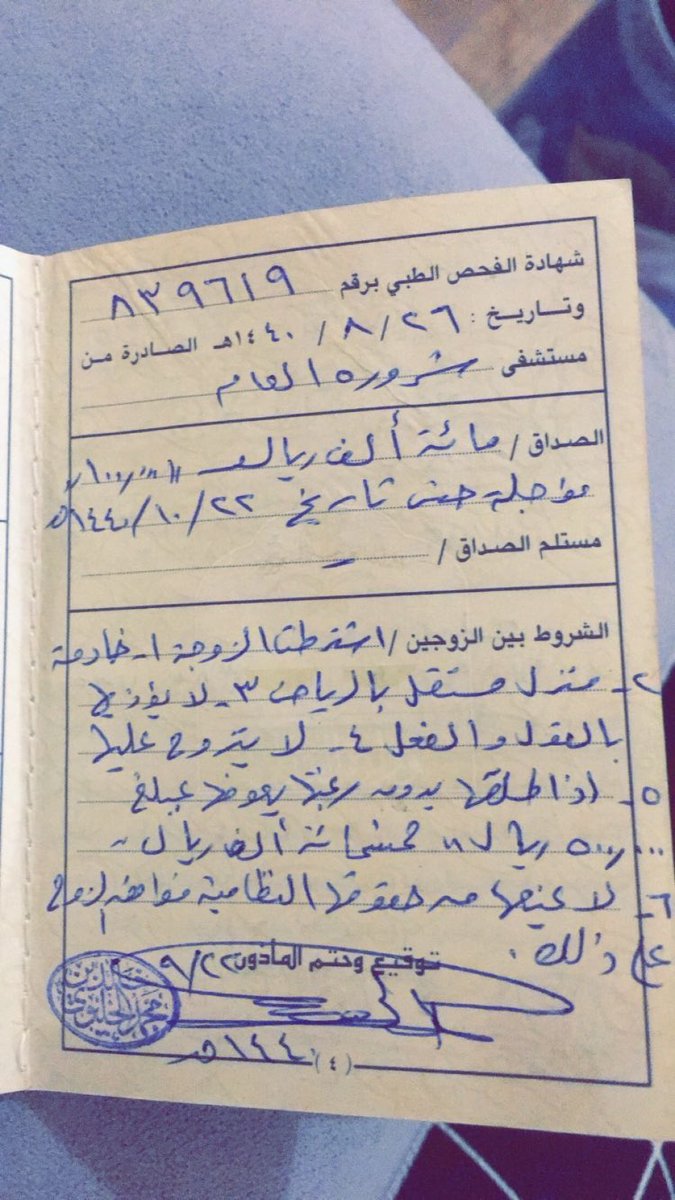 شهادة الفحص الطبي برقم ٨٣٩٦١٩
وتـــاريـخ : ٢٦ / ٨ / ١٤٤٠هـ الصـادرة مـن
مستشفى شروره العام
الصداق / مائة ألف ريال ١٠٠,٠٠٠
مؤجلة حتى تاريخ ٢٢ /١٠ /١٤٤٠هـ
مستلم الصداق / -
الشروط بين الزوجين / اشترطت الزوجة ١- خادمة
٢- منزل مستقل بالرياض ٣- لا يؤذيها
بالقول والفعل ٤- لا يتزوج عليها
٥- اذا طلقها بدون رغبتها يعوضها بمبلغ
٥٠٠,٠٠٠ ريال خمسمائة ألف ريال
٦- لا يمنعها من حقوقها النظامية فوافق الزوج
على ذلك .
توقيع وختم المأذون ٩/٢٢
١٤٤٠هـ
(٤)